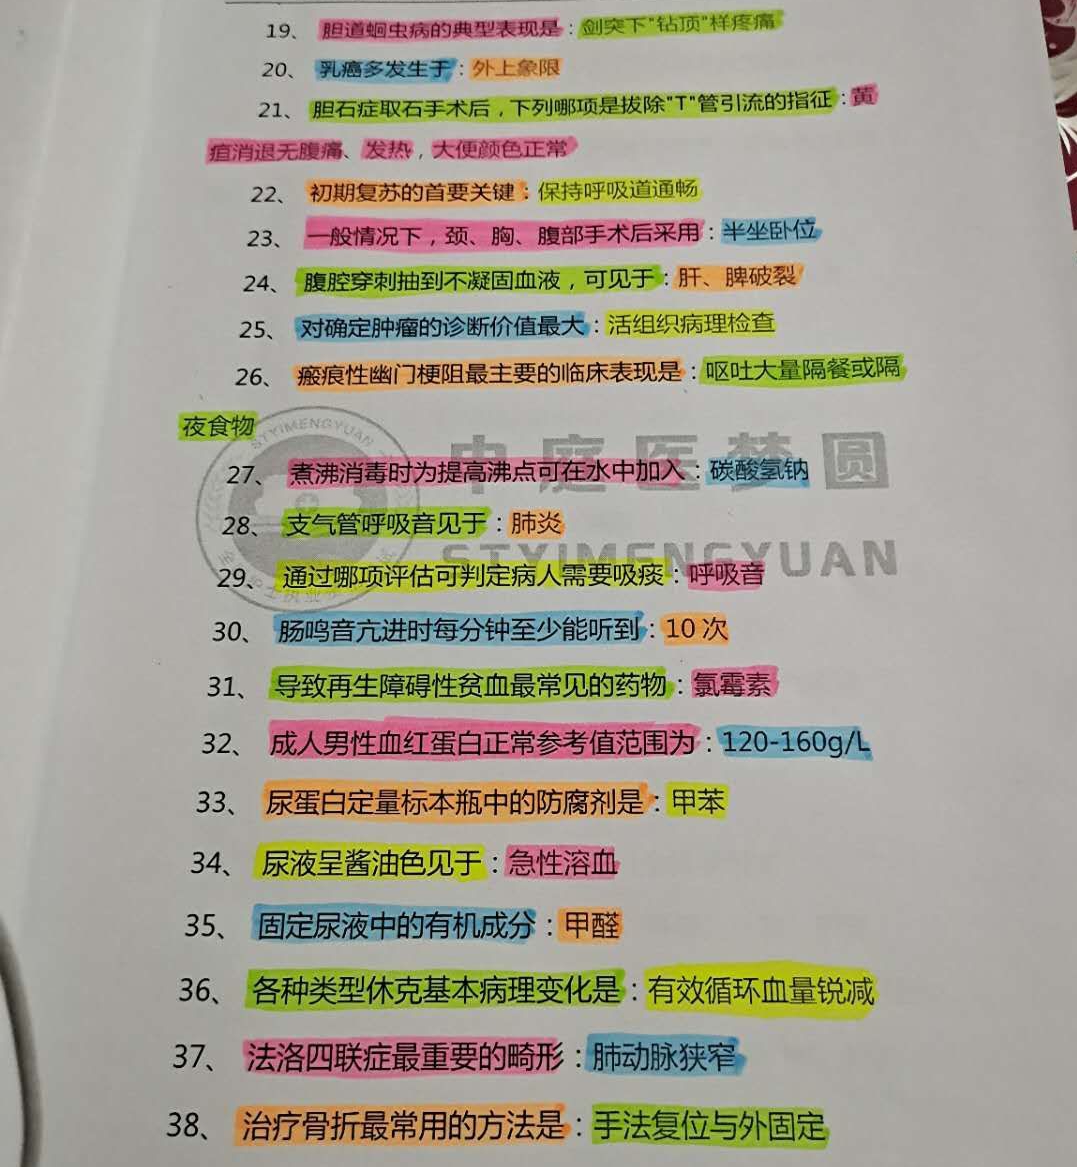 19、 胆道蛔虫病的典型表现是：剑突下"钻顶"样疼痛
20、 乳癌多发生于：外上象限
21、 胆石症取石手术后，下列哪项是拔除"T"管引流的指征：黄
疸消退无腹痛、发热，大便颜色正常
22、 初期复苏的首要关键：保持呼吸道通畅
23、 一般情况下，颈、胸、腹部手术后采用：半坐卧位
24、 腹腔穿刺抽到不凝固血液，可见于：肝、脾破裂
25、 对确定肿瘤的诊断价值最大：活组织病理检查
26、 瘢痕性幽门梗阻最主要的临床表现是：呕吐大量隔餐或隔
夜食物
STYIMENGYUAN
中庭医梦圆
27、 煮沸消毒时为提高沸点可在水中加入：碳酸氢钠
28、 支气管呼吸音见于：肺炎
STYIMENGYUAN
29、 通过哪项评估可判定病人需要吸痰：呼吸音
30、 肠鸣音亢进时每分钟至少能听到：10 次
31、 导致再生障碍性贫血最常见的药物：氯霉素
32、 成人男性血红蛋白正常参考值范围为：120-160g/L
33、 尿蛋白定量标本瓶中的防腐剂是：甲苯
34、 尿液呈酱油色见于：急性溶血
35、 固定尿液中的有机成分：甲醛
36、 各种类型休克基本病理变化是：有效循环血量锐减
37、 法洛四联症最重要的畸形：肺动脉狭窄
38、 治疗骨折最常用的方法是：手法复位与外固定